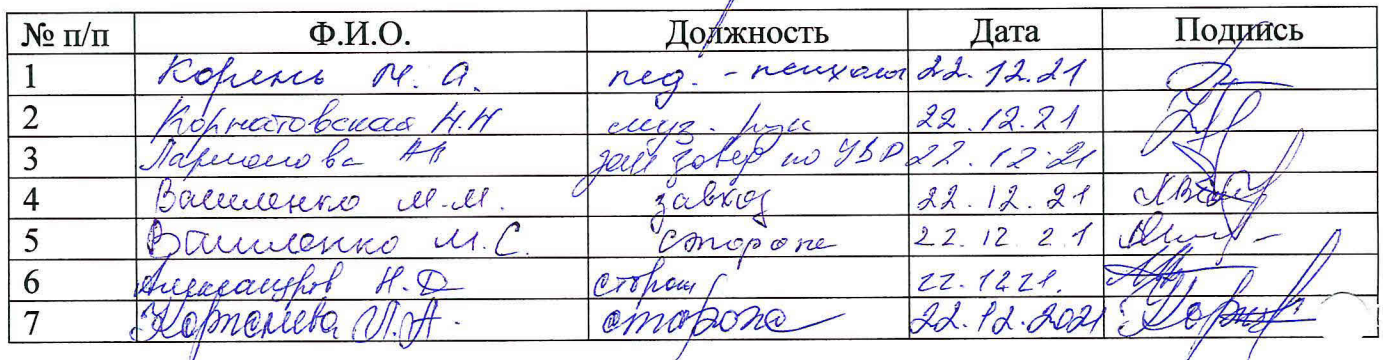 № п/п Ф.И.О. Должность Дата Подпись
1 Корень М. А. пед. - психолог 22.12.21
2 Корнатовская Н.Н муз. рук 22.12.21
3 Ларионова АВ зам завед по УВР 22.12.21
4 Василенко М.М. завхоз 22.12.21
5 Василенко М.С. сторож 22.12.21
6 Александров Н.Д сторож 22.1221.
7 Л.А. сторож 22.12.2021